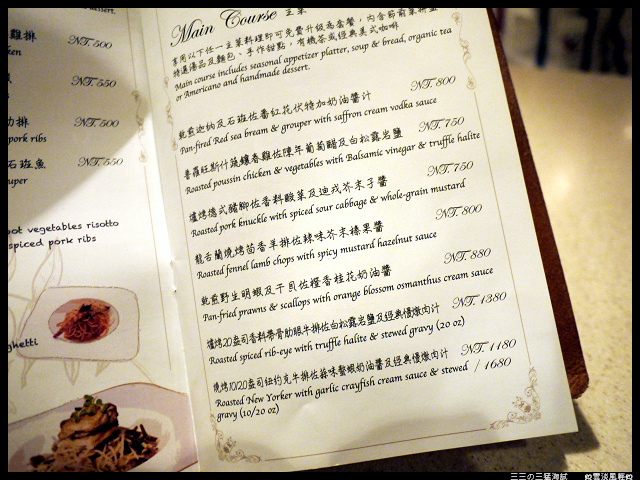 dessert.
雞排 NT. 500
ken
NT. 550
肋排 NT. 500
pork ribs
石斑魚 NT. 550
uper
oot vegetables risotto
spiced pork ribs
ghetti
Main Course 主菜
享用以下任一主菜料理即可免費升級為套餐，內含節前菜拼盤
特選湯品及麵包、手作甜點，有機茶或經典美式咖啡
Main course includes seasonal appetizer platter, soup & bread, organic tea
or Americano and handmade dessert.
乾煎迦納及石斑佐番紅花伏特加奶油醬汁 NT. 800
Pan-fired Red sea bream & grouper with saffron cream vodka sauce
普羅旺斯什蔬鑲春雞佐陳年葡萄醋及白松露岩鹽 NT. 750
Roasted poussin chicken & vegetables with Balsamic vinegar & truffle halite
爐烤德式豬腳佐香料酸菜及迪戎芥末子醬 NT. 750
Roasted pork knuckle with spiced sour cabbage & whole-grain mustard
龍舌蘭燒烤茴香羊排佐辣味芥末榛果醬 NT. 800
Roasted fennel lamb chops with spicy mustard hazelnut sauce
乾煎野生明蝦及干貝佐橙香桂花奶油醬 NT. 880
Pan-fried prawns & scallops with orange blossom osmanthus cream sauce
爐烤20盎司香料帶骨肋眼牛排佐白松露岩鹽及經典慢燉肉汁 NT. 1380
Roasted spiced rib-eye with truffle halite & stewed gravy (20 oz)
燒烤10/20盎司紐約克牛排佐蒜味螯蝦奶油醬及經典慢燉肉汁 NT. 1180
Roasted New Yorker with garlic crayfish cream sauce & stewed / 1680
gravy (10/20 oz)
三三の三猛海賊 雲淡風輕